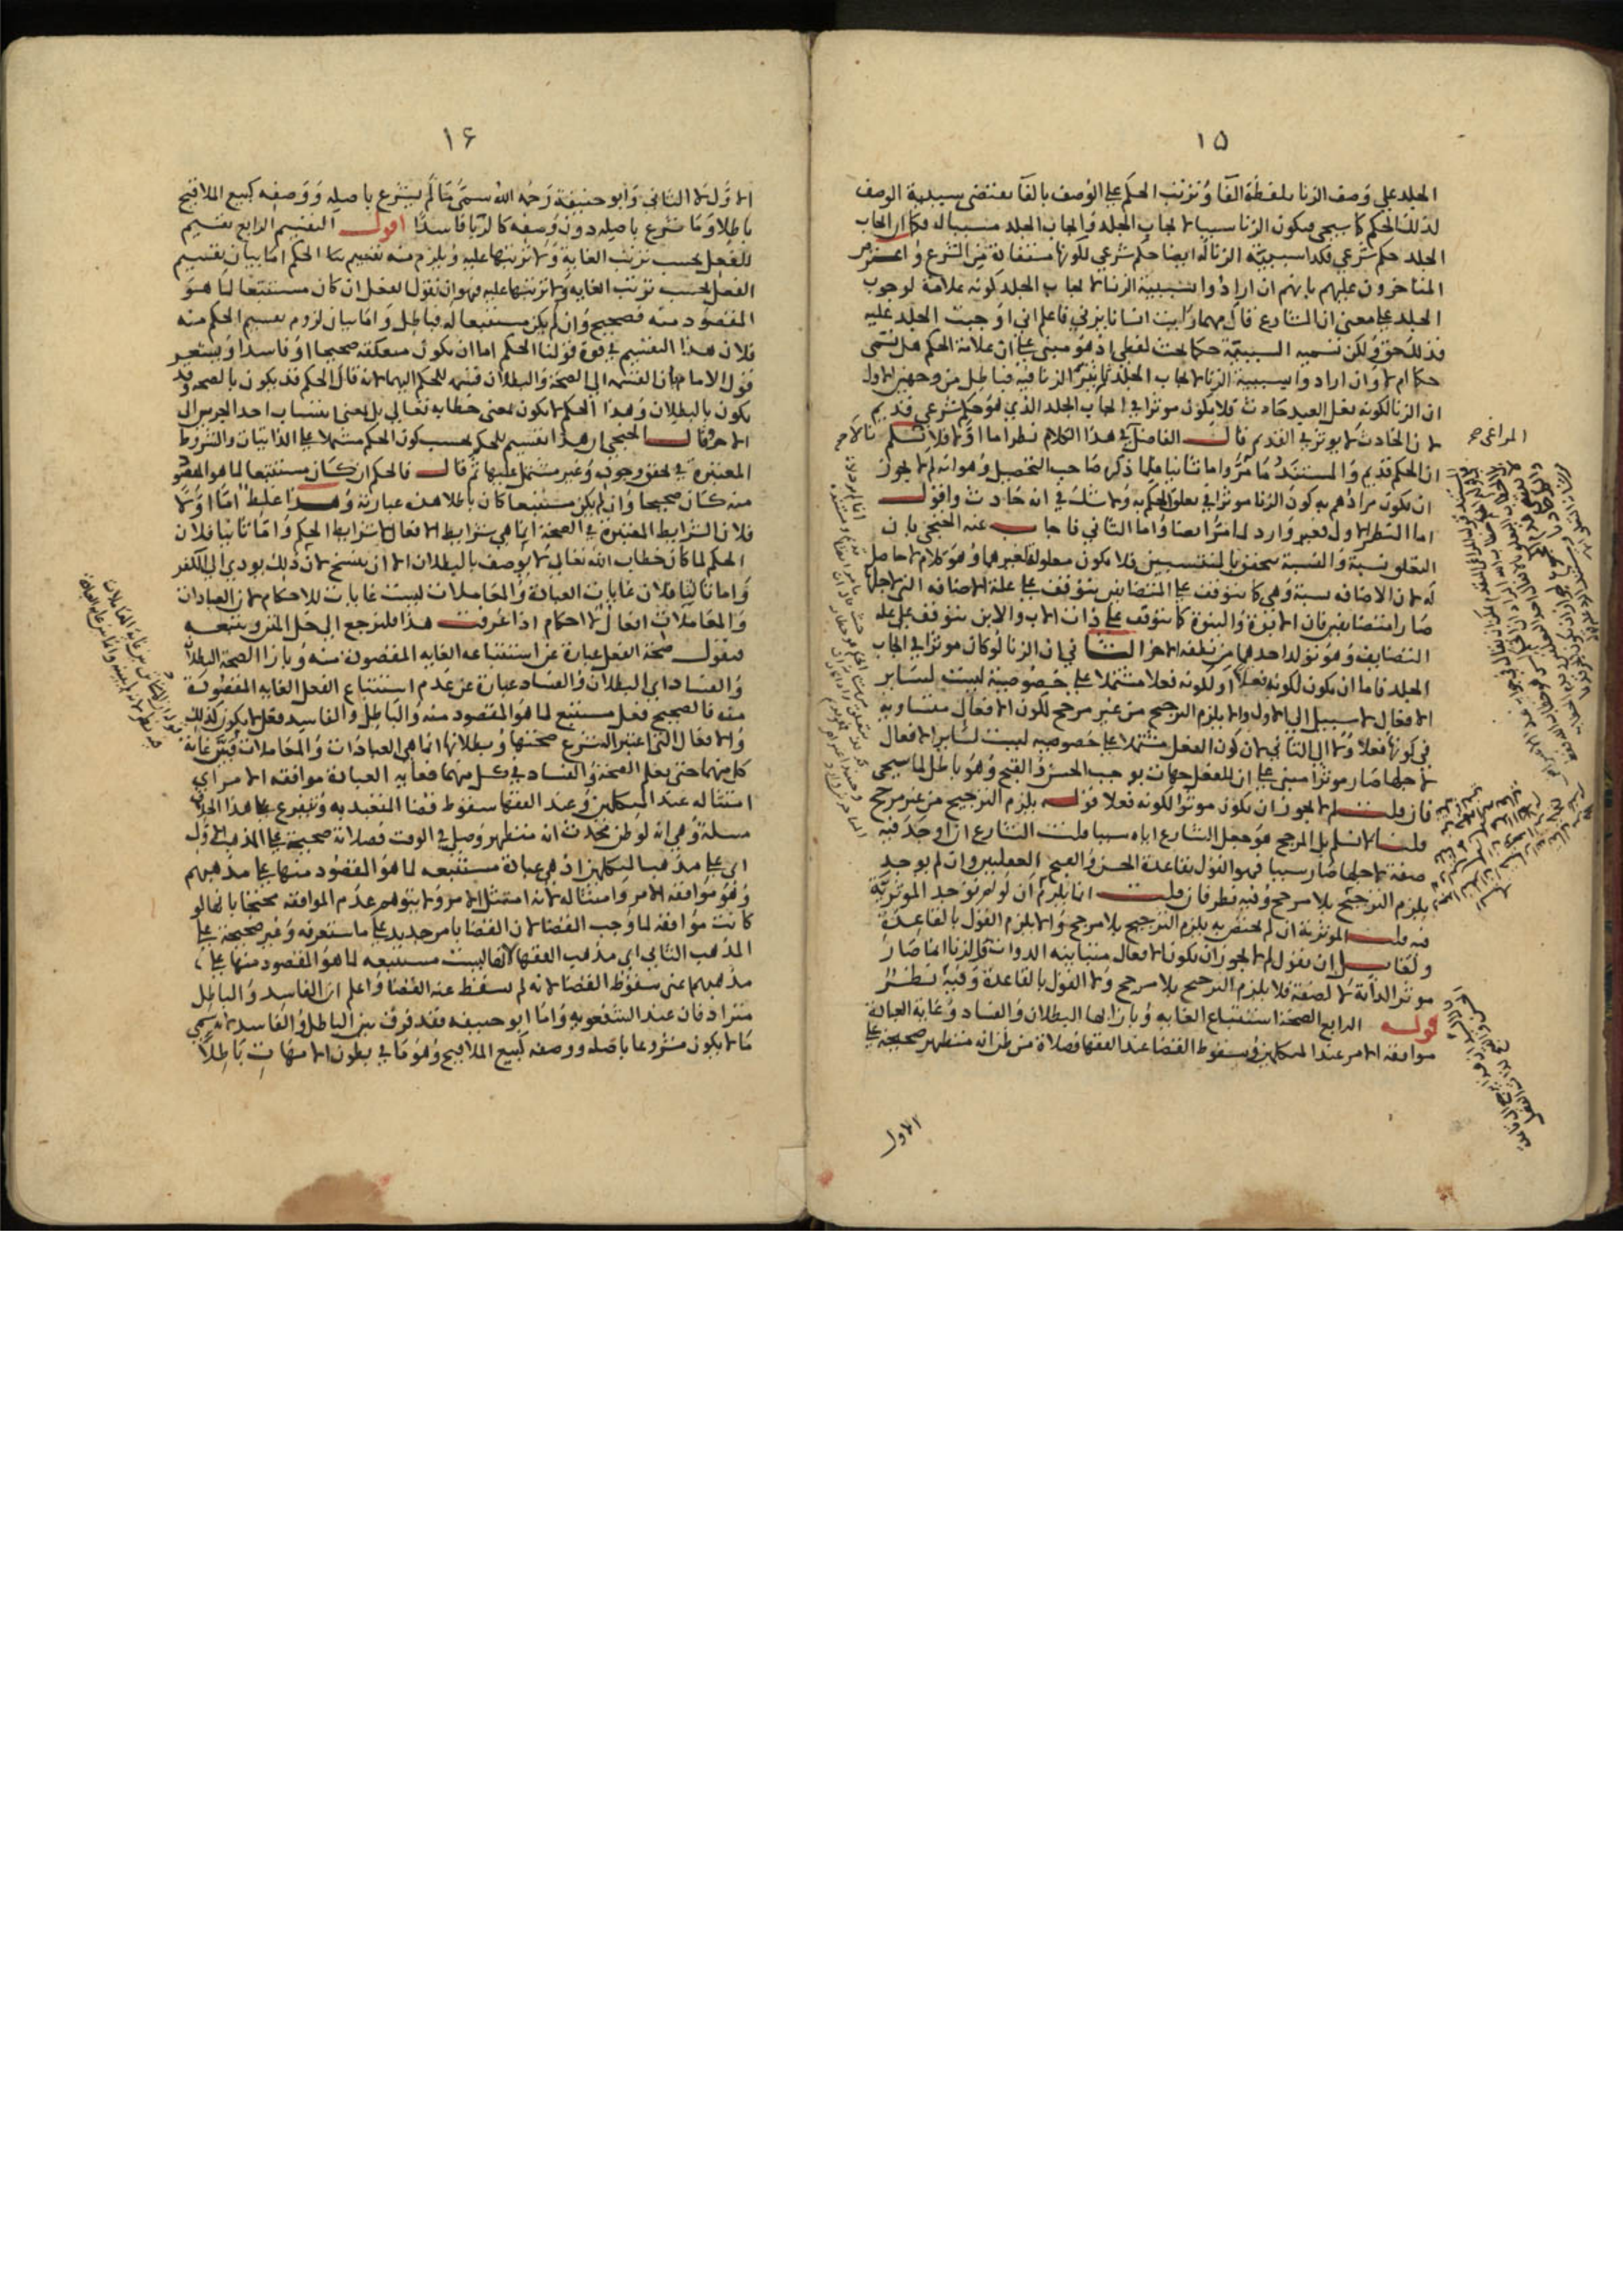 ١٥
الجلد على وصف الزنا بلفظة الفا وترتب الحكم على الوصف بالفا يقتضي سببية الوصف
لذلك الحكم كما سيجي فيكون الزنا سببا لايجاب الجلد وايجاب الجلد مسببا له فكما ان ايجاب
الجلد حكم شرعي فكذا سببية الزنا له ايضا حكم شرعي لكونها مستفادة من الشرع واعترض
المتاخرون عليهم بانهم ان ارادوا بسببية الزنا لايجاب الجلد كونه علامة لوجوب
الجلد على معنى ان الشارع قال مهما رايت انسانا يزني فاعلم اني اوجبت الجلد عليه
فذلك حق ولكن تسمية السببية حكما بحث لفظي اذ هو مبني على ان علامة الحكم هل تسمى
حكما ام لا وان ارادوا بسببية الزنا لايجاب الجلد تاثير الزنا فيه فباطل من وجهين الاول
ان الزنا لكونه فعل العبد حادث فلا يكون موثرا في ايجاب الجلد الذي هو حكم شرعي قديم
لان الحادث لا يوثر في القديم قال الفاضل في هذا الكلام نظر اما اولا فلا نسلم
ان الحكم قديم والمستند ما مر واما ثانيا فلما ذكره صاحب التحصيل وهو انه لم لا يجوز
ان يكون مرادهم به كون الزنا موثرا في تعلق الحكم به ولا شك في انه حادث واقول
اما النظر الاول فغير وارد لما مر ايضا واما الثاني فاجاب عنه الخنجي بان
التعلق نسبة والنسبة تتحقق بالمنتسبين فلا يكون معلولة لغيرهما وهو كلام لا حاصل
له لان الاضافة نسبة وهي كما تتوقف على المتضايفين تتوقف على علة الاضافة التي لاجلها
صارا متضايفين فان الابوة والبنوة كما تتوقف على ذات الاب والابن تتوقف على علة
التضايف وهو تولد احدهما من نطفة الاخر الثاني ان الزنا لو كان موثرا في ايجاب
الجلد فاما ان يكون لكونه فعلا او لكونه فعلا مشتملا على خصوصية ليست لساير
الافعال لا سبيل الى الاول والا يلزم الترجيح من غير مرجح لكون الافعال متساوية
في كونها فعلا ولا الى الثاني لان كون الفعل مشتملا على خصوصية ليست لساير الافعال
لاجلها صار موثرا مبني على ان للفعل جهات توجب الحسن والقبح وهو باطل لما سيجي
فان قلت لم لا يجوز ان يكون موثرا لكونه فعلا قوله يلزم الترجيح من غير مرجح
قلنا لا نسلم بل المرجح هو جعل الشارع اياه سببا قلت الشارع ان اوجد فيه
صفة لاجلها صار سببا فهو القول بقاعدة الحسن والقبح العقليين وان لم يوجد
يلزم الترجيح بلا مرجح وفيه نظر فان قلت انما يلزم ان لو لم توجد الموثرية
فيه قلت الموثرية ان لم تختص به يلزم الترجيح بلا مرجح والا يلزم القول بالقاعدة
ولقايل ان يقول لم لا يجوز ان يكون الافعال متباينة الذوات فالزنا انما صار
موثرا لذاته لا لصفة فلا يلزم الترجيح بلا مرجح ولا القول بالقاعدة وفيه نظر
قوله الرابع الصحة استتباع الغاية وبازايها البطلان والفساد وغاية العبادة
موافقة الامر عند المتكلمين وسقوط القضا عند الفقها فصلاة من ظن انه متطهر صحيحة على
الاول
١٦
الاول لا الثاني وابو حنيفة رحمه الله سمى ما لم يشرع باصله ووصفه كبيع الملاقيح
باطلا وما شرع باصله دون وصفه كالربا فاسدا اقول التقسيم الرابع تقسيم
للفعل بحسب ترتب الغاية ولا ترتبها عليه ويلزم منه تقسيم الحكم اما بيان تقسيم
الفعل بحسب ترتب الغاية ولا ترتبها عليه فهو ان نقول الفعل ان كان مستتبعا لما هو
المقصود منه فصحيح وان لم يكن مستتبعا له فباطل واما بيان لزوم تقسيم الحكم منه
فلان هذا التقسيم في قوة قولنا الحكم اما ان يكون متعلقه صحيحا او فاسدا ويشعر
قول الامام بان القسمة الى الصحة والبطلان قسمة للحكم اليهما لانه قال الحكم قد يكون بالصحة وقد
يكون بالبطلان وهذا الحكم لا يكون بمعنى خطابه تعالى بل بمعنى انتساب احد الجزين الى
الاخر وقال الخنجي ان هذا تقسيم للحكم بحسب كون الحكم مشتملا على الذاتيات والشروط
المعتبرة في تحقق وجوبه وغير مشتمل عليها ثم قال فالحكم ان كان مستتبعا لما هو المقصود
منه كان صحيحا وان لم يكن مستتبعا كان باطلا هذه عبارته وهذا غلط اما اولا
فلان الشرايط المعتبرة في الصحة انما هي شرايط الافعال لا شرايط الحكم واما ثانيا فلان
الحكم لما كان خطاب الله تعالى لا يوصف بالبطلان الا ان ينسخ لان ذلك يودي الى الكفر
واما ثالثا فلان غايات العبادة والمعاملات ليست غايات للاحكام لان العبادات
والمعاملات افعال لا احكام اذا عرفت هذا فلنرجع الى حل المتن ونتبعه
فنقول صحة الفعل عبارة عن استتباعه الغاية المقصودة منه وبازا الصحة البطلان
والفساد اي البطلان والفساد عبارة عن عدم استتباع الفعل الغاية المقصودة
منه فالصحيح فعل مستتبع لما هو المقصود منه والباطل والفاسد فعل لا يكون كذلك
والافعال التي اعتبر الشرع صحتها وبطلانها انما هي العبادات والمعاملات فبين غاية
كل منهما حتى يعلم الصحة والفساد في كل منهما فغاية العبادة موافقة الامر اي
امتثاله عند المتكلمين وعند الفقها سقوط قضا التعبد به ويتفرع على هذا الخلاف
مسلة وهي انه لو ظن محدث انه متطهر وصلى في الوقت فصلاته صحيحة على المذهب الاول
اي على مذهب المتكلمين اذ هي عبادة مستتبعة لما هو المقصود منها على مذهبهم
وهو موافقة الامر وامتثاله لانه امتثل الامر ولا يتوهم عدم الموافقة محتجا بانها لو
كانت موافقة لما وجب القضا لان القضا بامر جديد على ما ستعرفه وغير صحيحة على
المذهب الثاني اي مذهب الفقها لانها ليست مستتبعة لما هو المقصود منها على
مذهبهم اعني سقوط القضا لانه لم يسقط عنه القضا واعلم ان الفاسد والباطل
مترادفان عند الشفعوية واما ابو حنيفة فقد فرق بين الباطل والفاسد لانه سمى
ما لا يكون مشروعا باصله ووصفه كبيع الملاقيح وهو ما في بطون الامهات باطلا